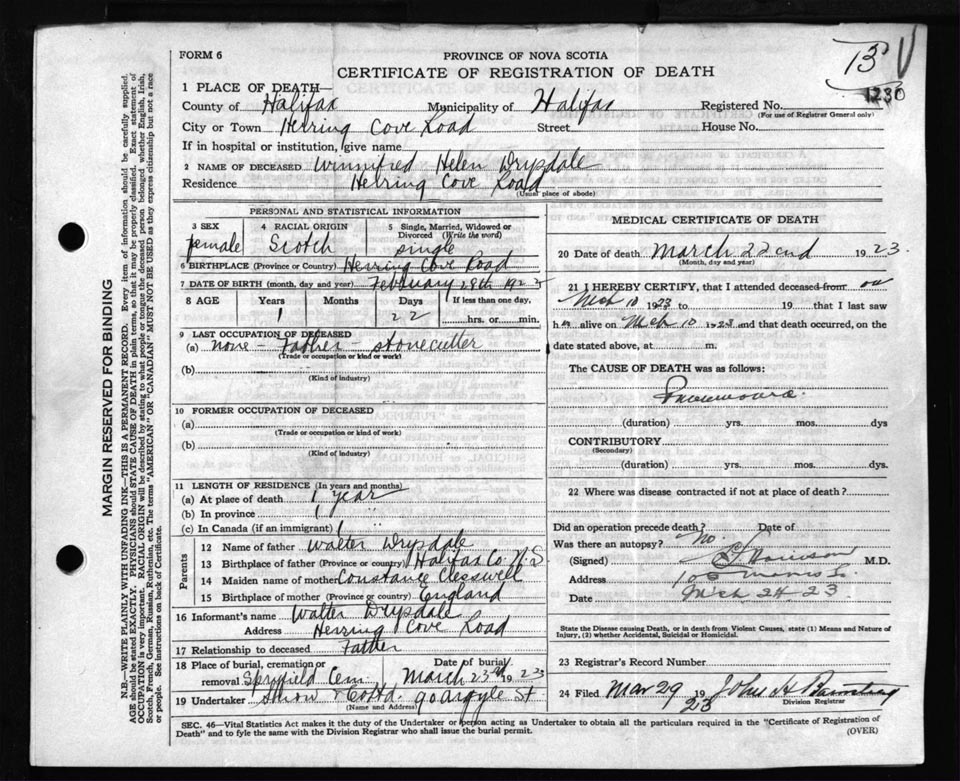 FORM 6
PROVINCE OF NOVA SCOTIA
CERTIFICATE OF REGISTRATION OF DEATH
13
1230
1 PLACE OF DEATH—
County of Halifax Municipality of Halifax Registered No.
(For use of Registrar General only)
City or Town Herring Cove Road Street House No.
If in hospital or institution, give name
2 NAME OF DECEASED Winnifred Helen Drysdale
Residence Herring Cove Road
(Usual place of abode)
PERSONAL AND STATISTICAL INFORMATION
3 SEX 4 RACIAL ORIGIN 5 Single, Married, Widowed or Divorced (Write the word)
female Scotch single
6 BIRTHPLACE (Province or Country) Herring Cove Road
7 DATE OF BIRTH (month, day and year) February 28th 192
8 AGE Years Months Days If less than one day,
1 22 hrs. or min.
9 LAST OCCUPATION OF DECEASED
(a) none - Father - stonecutter
(Trade or occupation or kind of work)
(b)
(Kind of industry)
10 FORMER OCCUPATION OF DECEASED
(a)
(Trade or occupation or kind of work)
(b)
(Kind of industry)
11 LENGTH OF RESIDENCE (In years and months)
(a) At place of death 1 year
(b) In province 1
(c) In Canada (if an immigrant) 1
Parents
12 Name of father Walter Drysdale
13 Birthplace of father (Province or country) Halifax Co. N.S
14 Maiden name of mother Constance
15 Birthplace of mother (Province or country) England
16 Informant's name Walter Drysdale
Address Herring Cove Road
17 Relationship to deceased Father
18 Place of burial, cremation or removal Spryfield Cem Date of burial March 23rd 1923
19 Undertaker Snow & Co Ltd. 90 Argyle St
(Name and Address)
MEDICAL CERTIFICATE OF DEATH
20 Date of death March 22nd 1923.
(Month, day and year)
21 I HEREBY CERTIFY, that I attended deceased from on
Mch 10 1923 to 19 that I last saw
h alive on Mch 10 1923 and that death occurred, on the
date stated above, at m.
The CAUSE OF DEATH was as follows:
Pneumonia.
(duration) yrs. mos. dys
CONTRIBUTORY
(Secondary)
(duration) yrs. mos. dys.
22 Where was disease contracted if not at place of death?
Did an operation precede death? Date of
Was there an autopsy? No.
(Signed) M.D.
Address
Date Mch 24 23
State the Disease causing Death, or in death from Violent Causes, state (1) Means and Nature of Injury, (2) whether Accidental, Suicidal or Homicidal.
23 Registrar's Record Number
24 Filed Mar 29 1923 John H
Division Registrar
SEC. 46—Vital Statistics Act makes it the duty of the Undertaker or person acting as Undertaker to obtain all the particulars required in the "Certificate of Registration of
Death" and to fyle the same with the Division Registrar who shall issue the burial permit.
(OVER)
MARGIN RESERVED FOR BINDING
N.B.—WRITE PLAINLY WITH UNFADING INK—THIS IS A PERMANENT RECORD. Every item of information should be carefully supplied.
AGE should be stated EXACTLY. PHYSICIANS should STATE CAUSE OF DEATH in plain terms, so that it may be properly classified. Exact statement of
OCCUPATION is very important. RACIAL ORIGIN will be described by stating to what people or tongue the deceased person belonged whether English, Irish,
Scotch, French, German, Russian, Ruthenian, etc. The terms "AMERICAN" or "CANADIAN" MUST NOT BE USED as they express citizenship but not a race
or people. See instructions on back of Certificate.